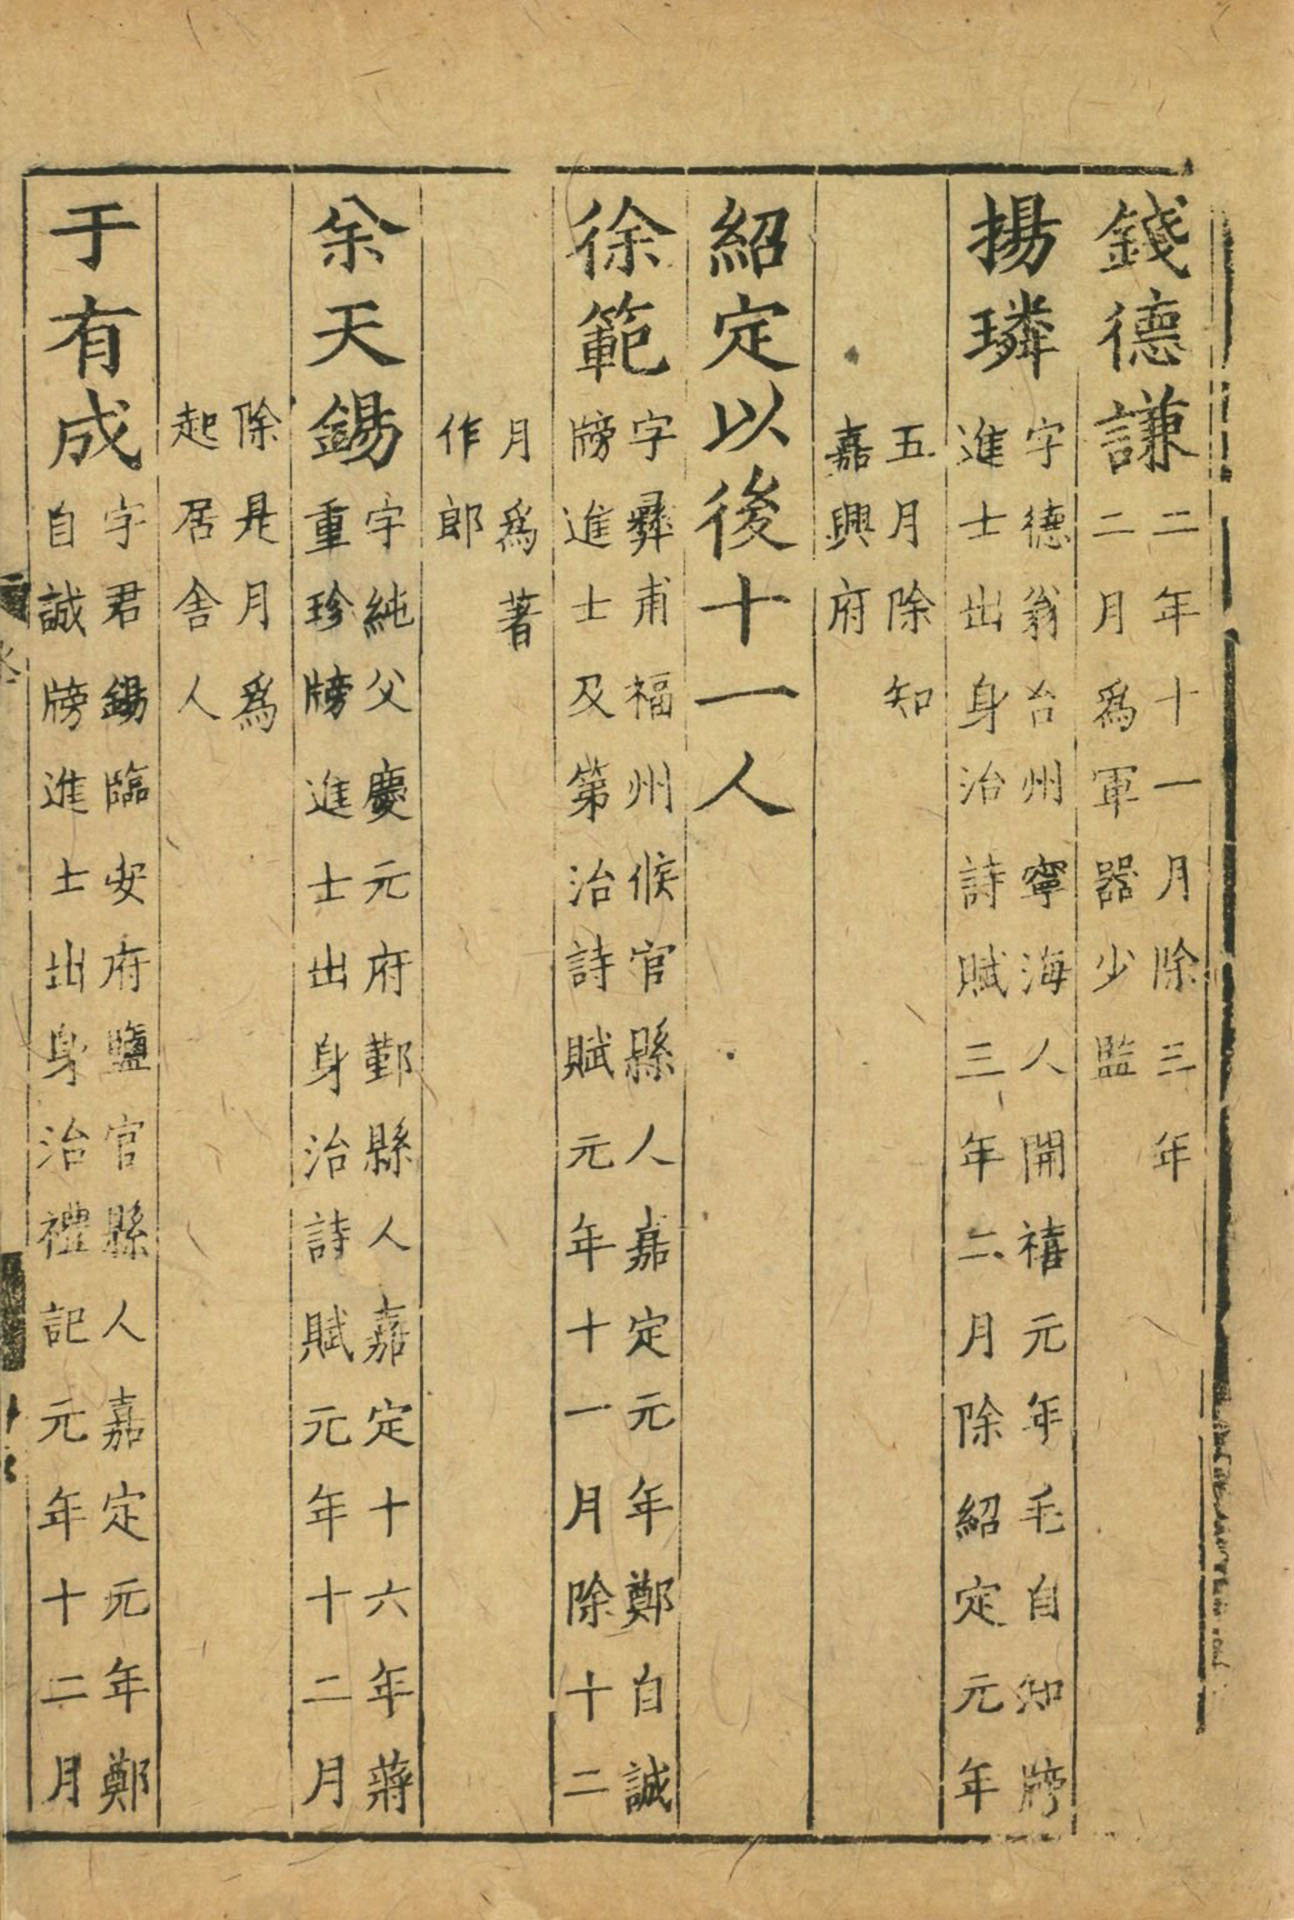 錢德謙二年十一月除三年二月爲軍器少監
揚璘字德翁台州寧海人開禧元年毛自知牓進士出身治詩賦三年二月除紹定元年
五月除知嘉興府
紹定以後十一人
徐範字彛甫福州候官縣人嘉定元年鄭自誠牓進士及第治詩賦元年十一月除十二
月爲著作郎
余天錫字純父慶元府鄞縣人嘉定十六年蔣重珍牓進士出身治詩賦元年十二月
除是月爲起居舍人
于有成字君錫臨安府鹽官縣人嘉定元年鄭自誠牓進士出身治禮記元年十二月